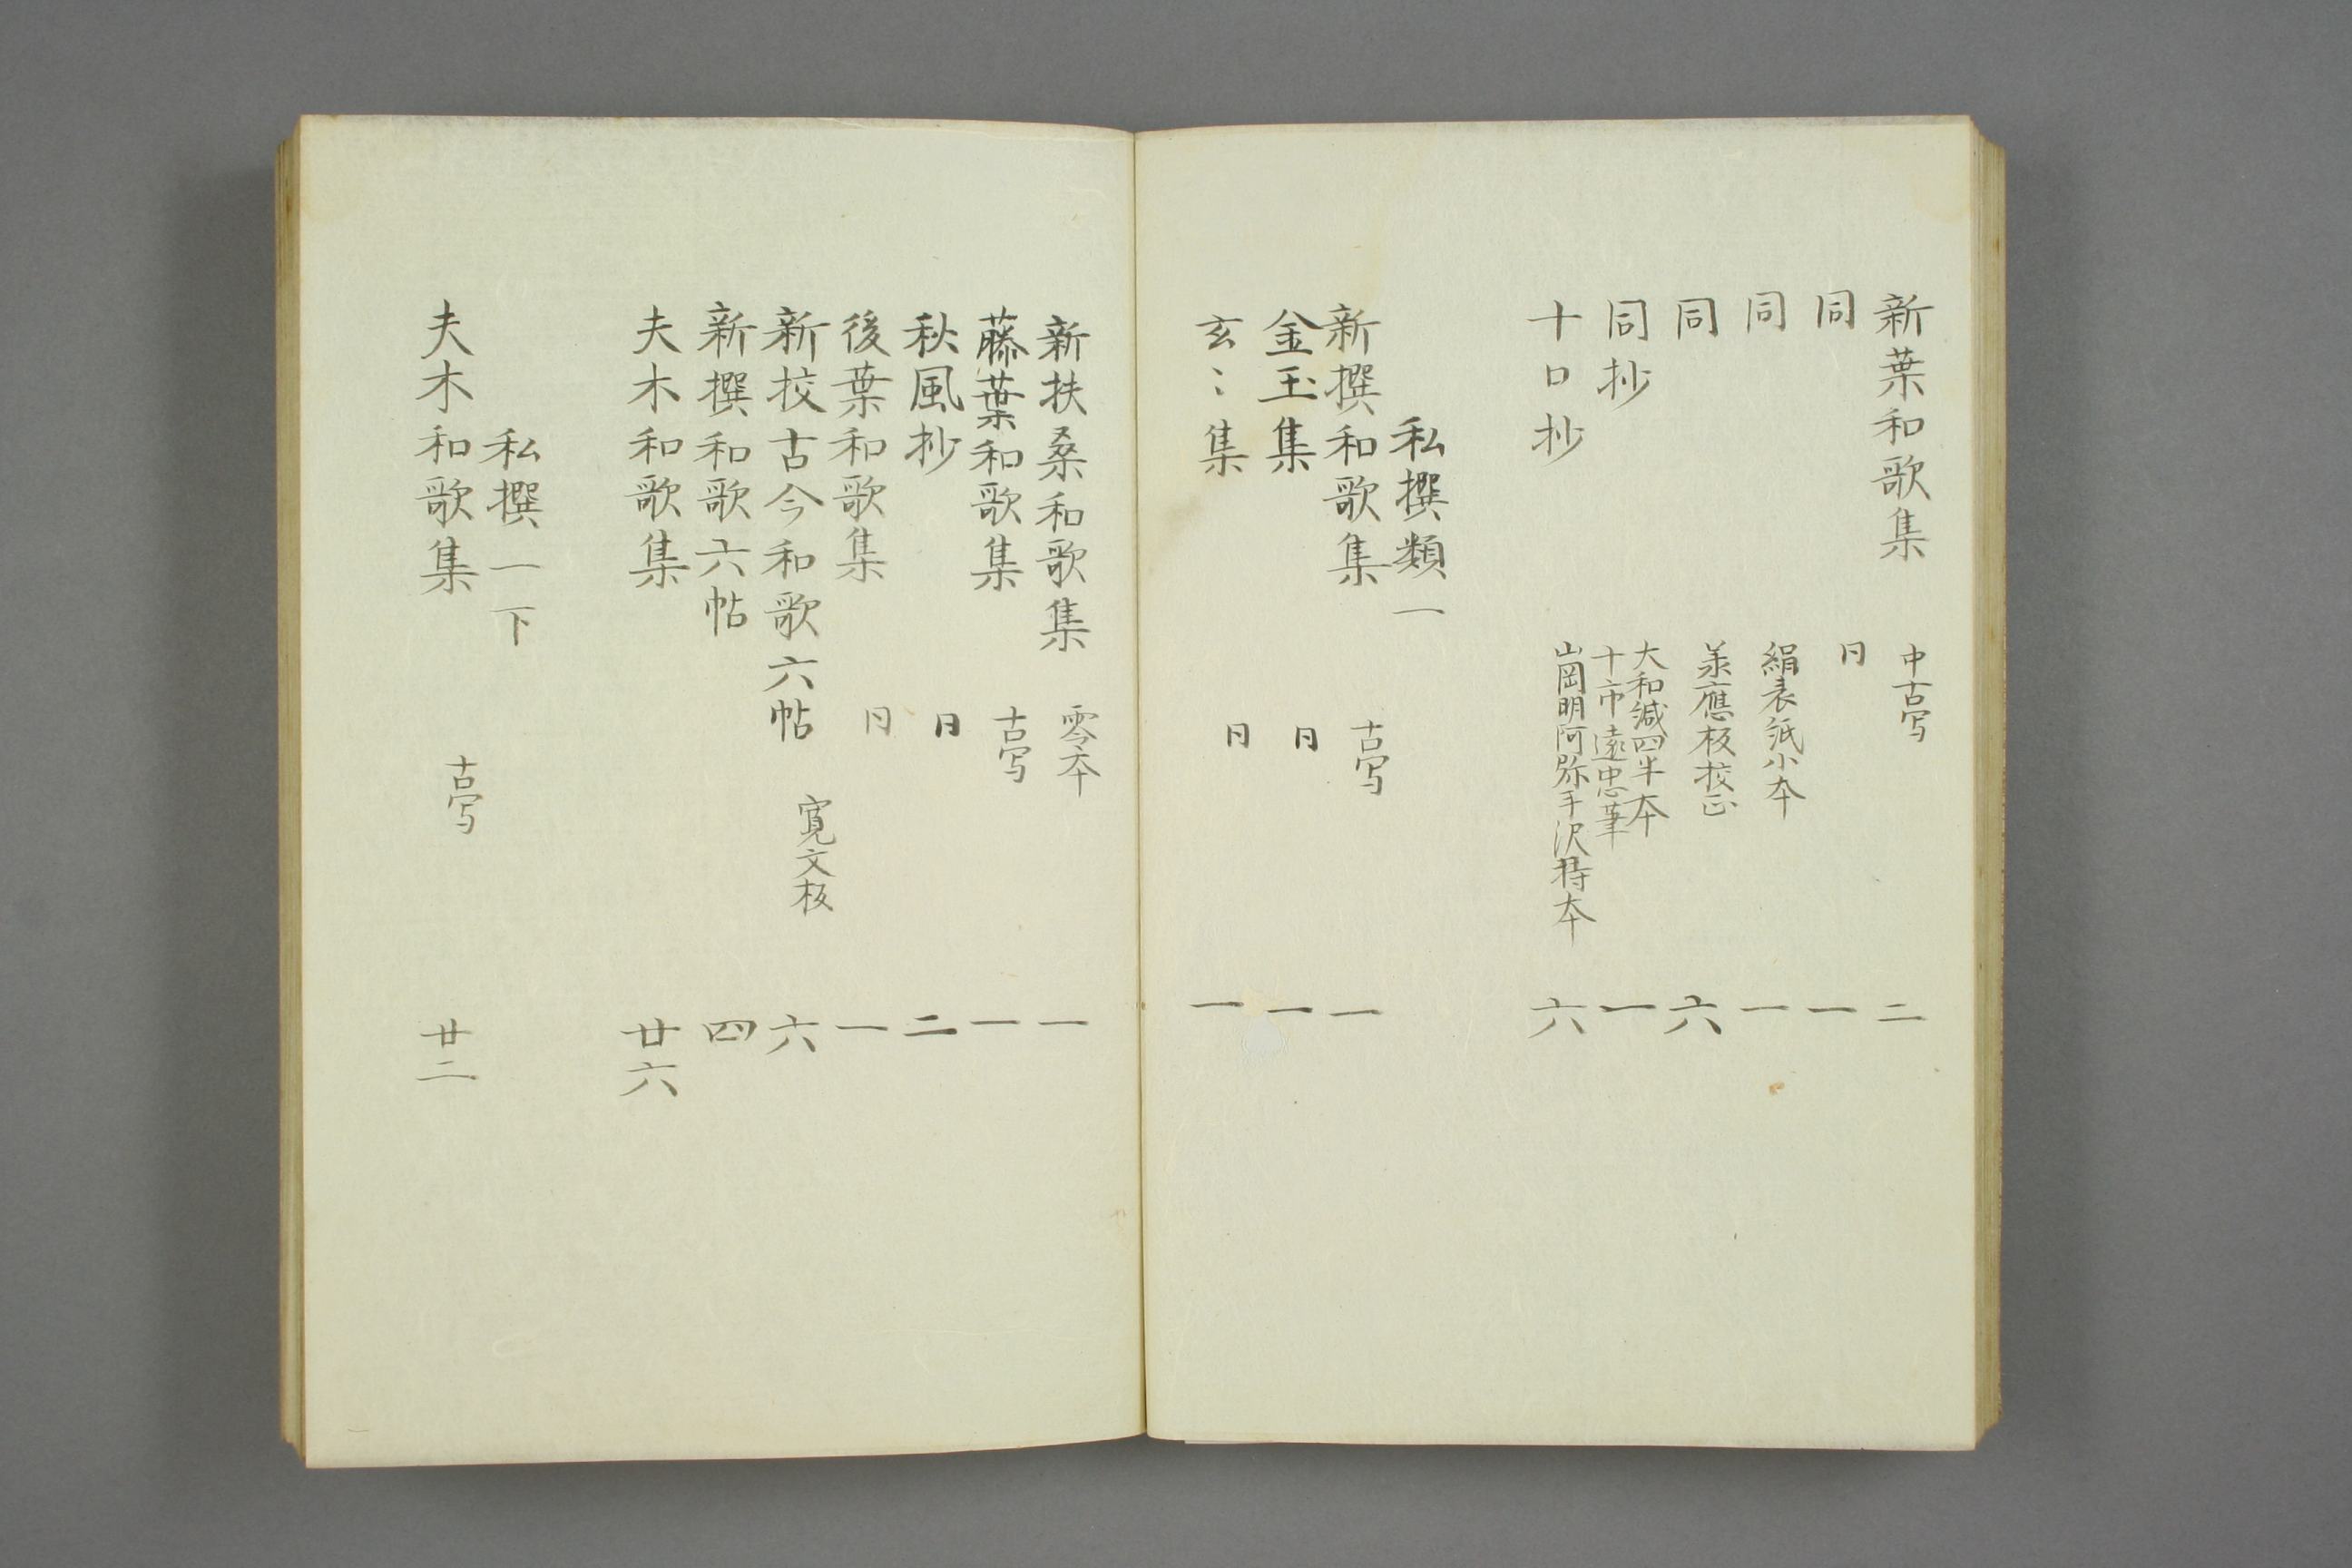 新葉和歌集 中古写 二
同 同 一
同 絹表紙小本 一
同 承應板校正 六
同抄 大和綴四半本 十市遠忠筆 一
十口抄 山岡明阿弥手沢得本 六
私撰類一
新撰和歌集 古写 一
金玉集 同 一
玄〻集 同 一
新扶桑和歌集 零本 一
藤葉和歌集 古写 一
秋風抄 同 二
後葉和歌集 同 一
新校古今和歌六帖 寛文板 六
新撰和歌六帖 四
夫木和歌集 廿六
私撰一下
夫木和歌集 古写 廿二